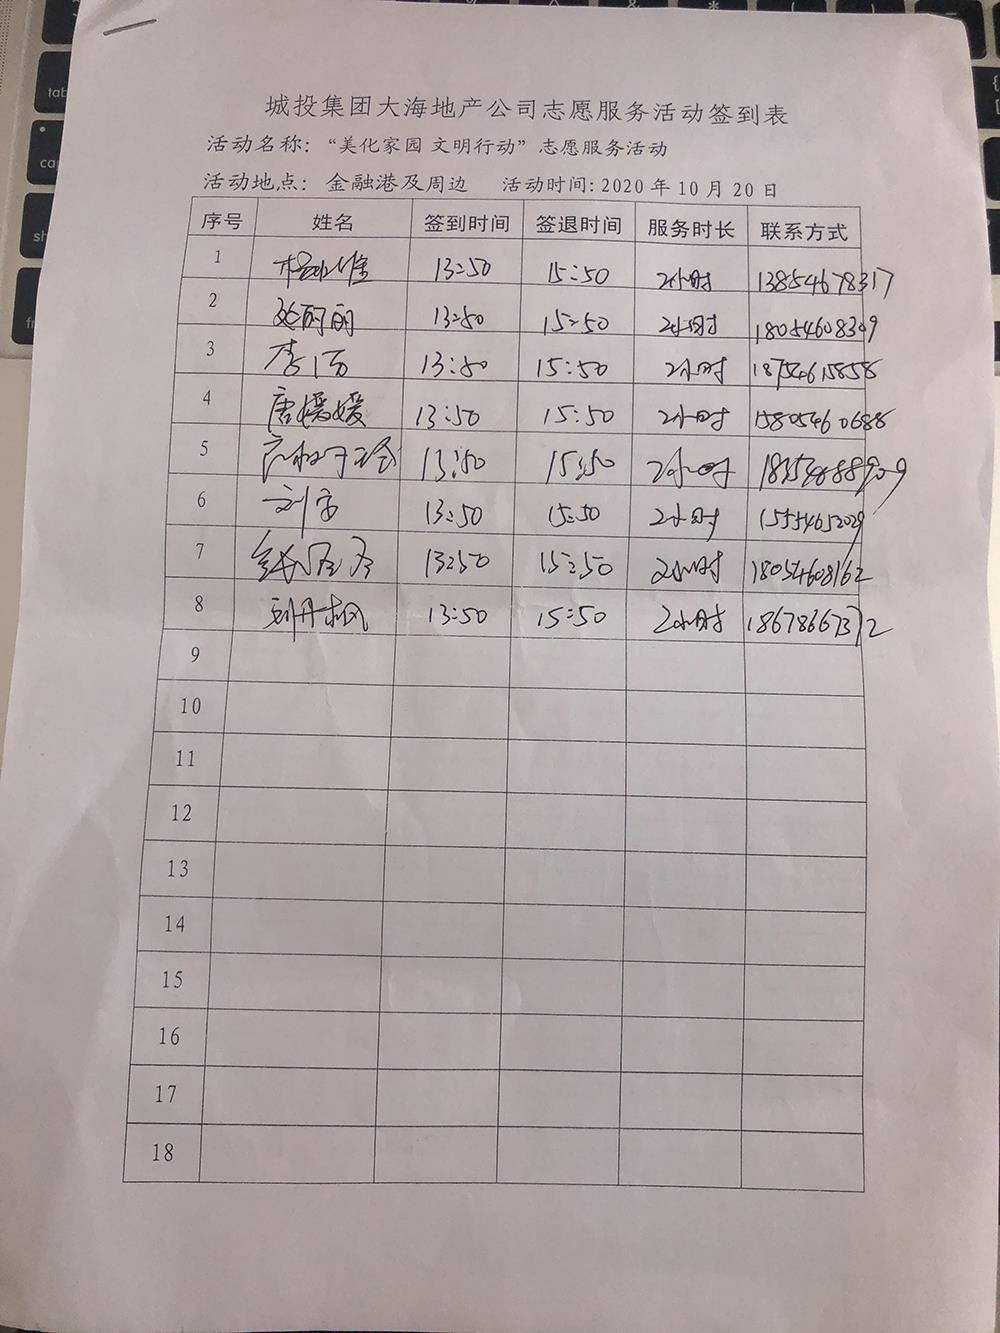 城投集团大海地产公司志愿服务活动签到表
活动名称：“美化家园 文明行动”志愿服务活动
活动地点： 金融港及周边 活动时间: 2020 年 10 月 20 日
序号 姓名 签到时间 签退时间 服务时长 联系方式
1 13:50 15:50 2小时 13854678317
2 丽丽 13:50 15:50 2小时 18054608309
3 李 13:50 15:50 2小时 18754615858
4 唐媛媛 13:50 15:50 2小时 15805460688
5 13:50 15:50 2小时
6 刘 13:50 15:50 2小时 15554652029
7 13:50 15:50 2小时 18054608162
8 刘丹枫 13:50 15:50 2小时 18678667372
9
10
11
12
13
14
15
16
17
18
tab